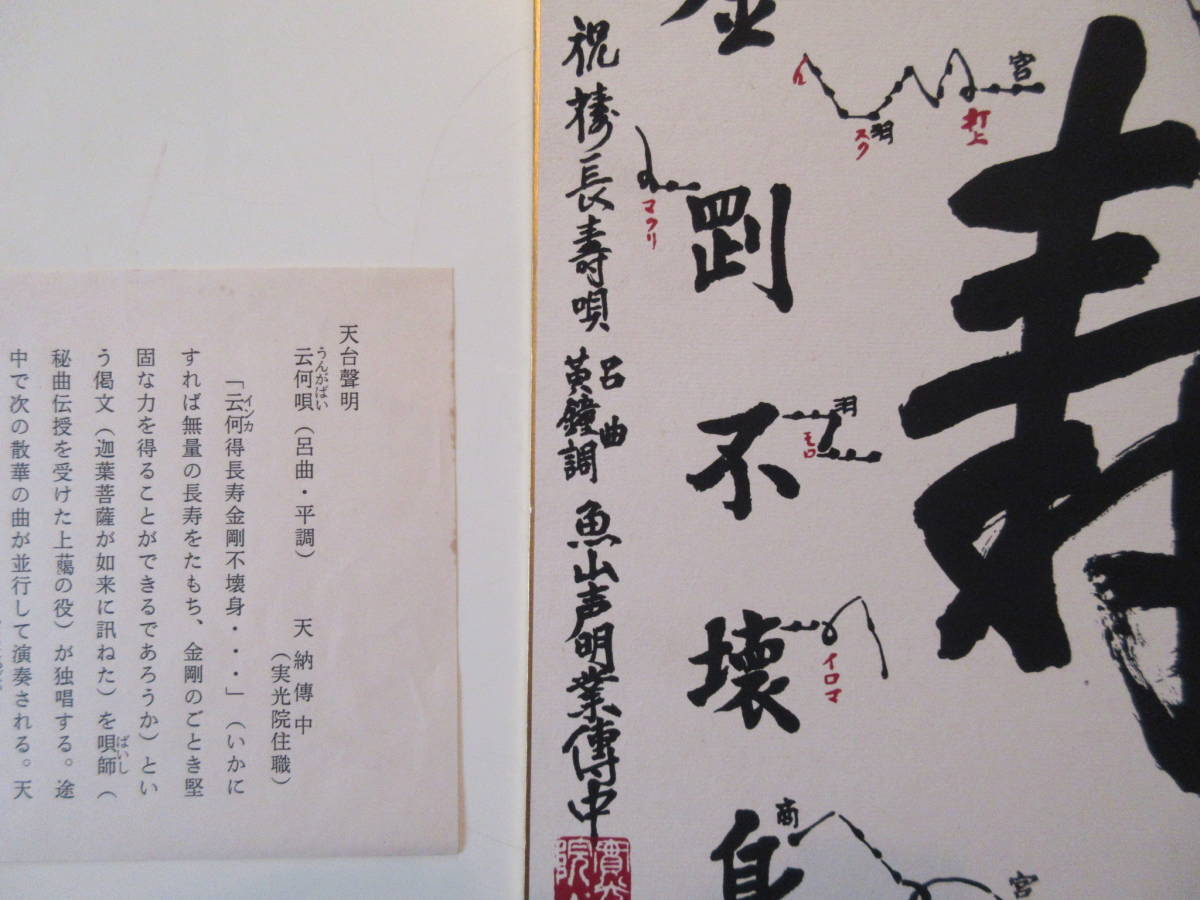 寿
宮
打上
羽
スク
イ
金剛不壊身
羽
モロ
イロマ
商
宮
マクリ
祝 長壽唄 呂曲 黄鐘調 魚山声明業傳中
天台聲明
云何唄(呂曲・平調) 天納傳中
うんがばい
(実光院住職)
「云何得長寿金剛不壊身・・・」(いかに
インカ
すれば無量の長寿をたもち、金剛のごとき堅
固な力を得ることができるであろうか)とい
う偈文(迦葉菩薩が如来に訊ねた)を唄師(
ばいし
秘曲伝授を受けた上﨟の役)が独唱する。途
中で次の散華の曲が並行して演奏される。天